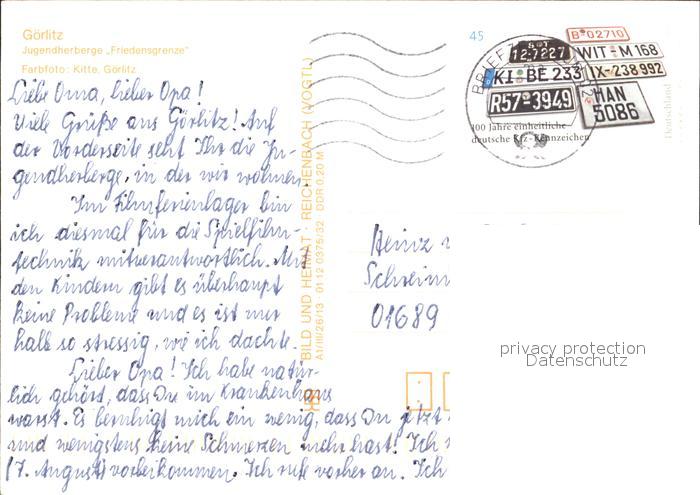 Görlitz
Jugendherberge „Friedensgrenze"
Farbfoto: Kitte, Görlitz
Liebe Oma, lieber Opa!
Viele Grüße aus Görlitz! Auf
der Vorderseite seht Ihr die Ju-
gendherberge, in der wir wohnen.
Im Filmferienlager bin
ich diesmal für die Spielfilm-
technik mitverantwortlich. Mit
den Kindern gibt es überhaupt
keine Probleme und es ist nur
halb so stressig, wie ich dachte.
Lieber Opa! Ich habe natür-
lich gehört, dass Du im Krankenhaus
warst. Es beruhigt mich ein wenig, dass Du jetzt
und wenigstens keine Schmerzen mehr hast! Ich
(7. August) vorbeikommen. Ich rufe vorher an. Ich
BILD UND HEIMAT · REICHENBACH (VOGTL)
A1/III/26/13 · 01 12 0375/32 DDR 0,20 M
45
B·02710
12·7227
WIT-M 168
KI·BE 233
IX-238 992
R57·3949
HAN
5086
100 Jahre einheitliche
deutsche Kfz-Kennzeichen
Deutschland
BRIEFZ
Heinz
Schreim
01689
privacy protection
Datenschutz